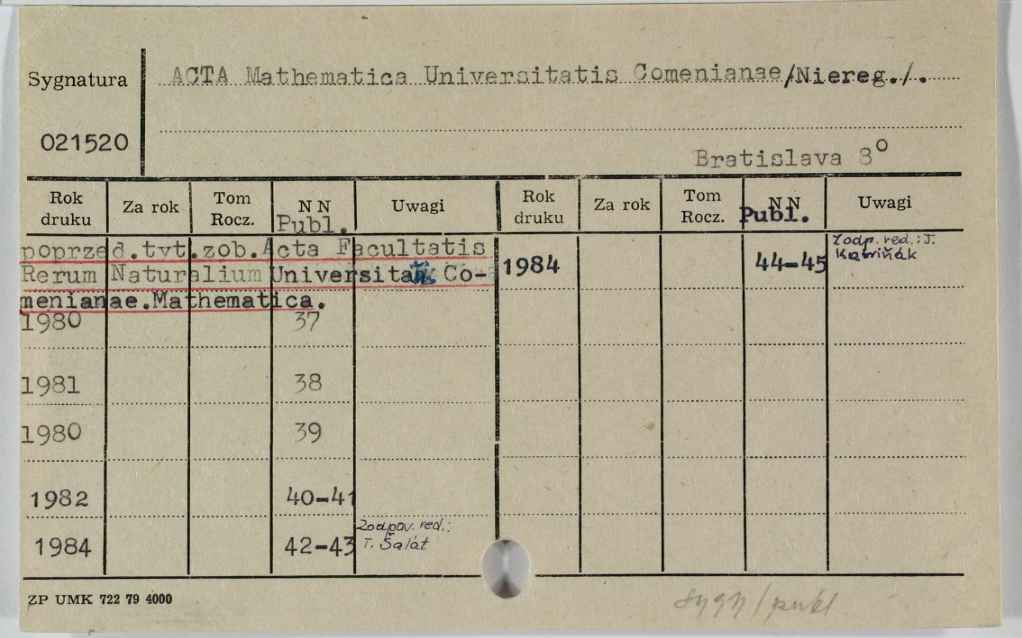 Sygnatura
ACTA Mathematica Universitatis Comenianae/Niereg./.
021520
Bratislava 8°
Rok druku
Za rok
Tom Rocz.
N N
Publ.
Uwagi
Rok druku
Za rok
Tom Rocz.
N N
Publ.
Uwagi
poprzed.tyt.zob.Acta Facultatis
Rerum Naturalium Universitatis Co-
menianae.Mathematica.
1980 37
1981 38
1980 39
1982 40-41
1984 42-43 Zodpov. red.:
T. Šalát
1984 44-45 Zodp. red.: J.
Katriňák
ZP UMK 722 79 4000
sygn/publ